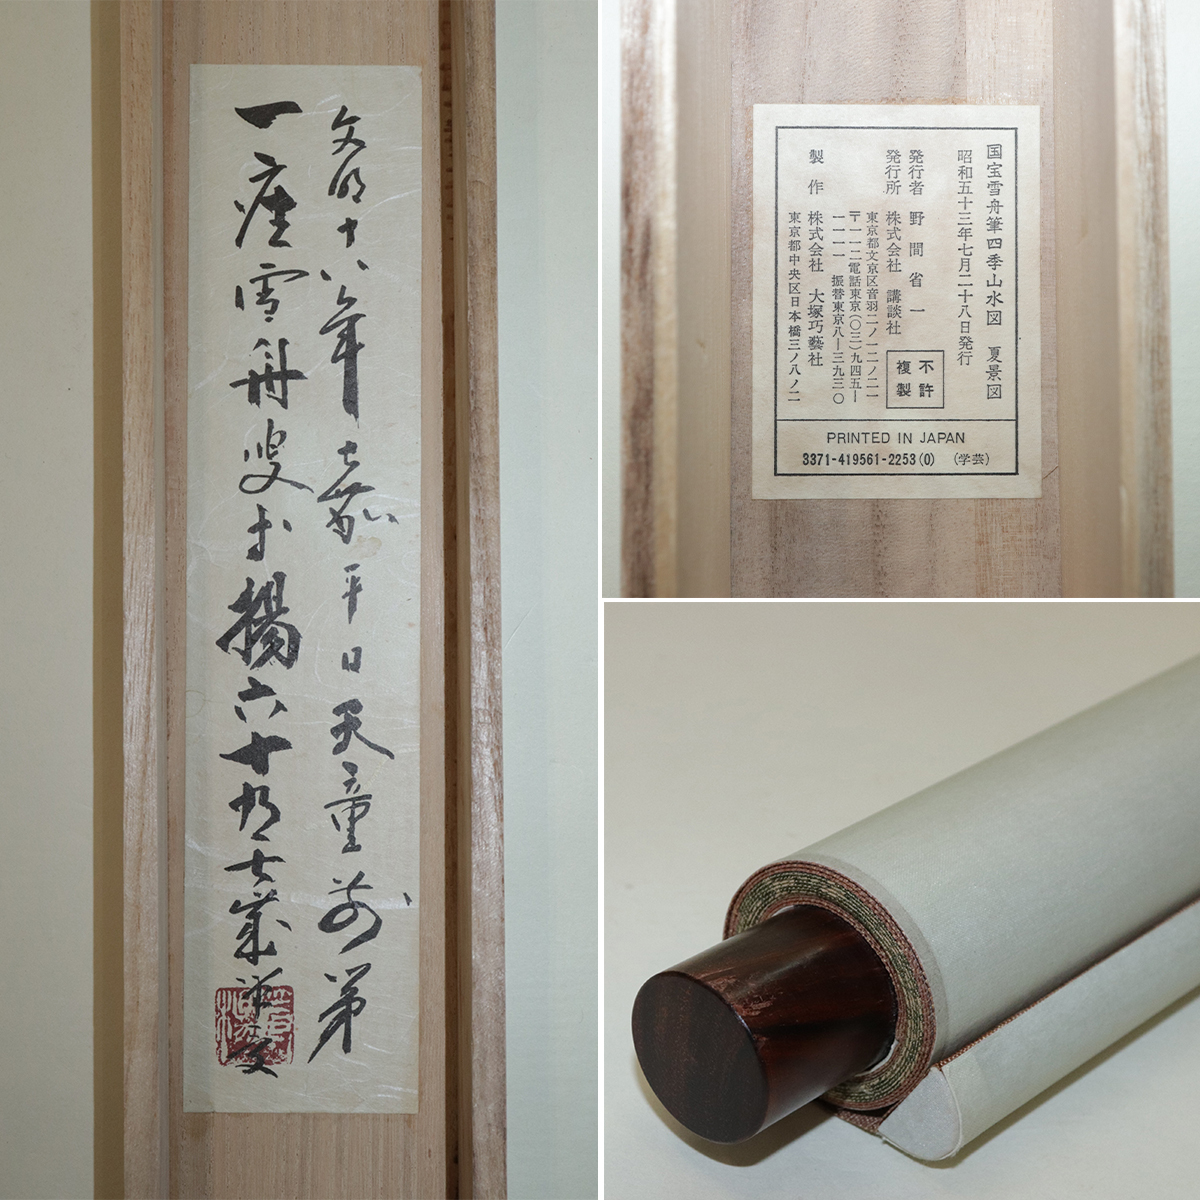 文明十八年嘉平日天童前第
一座雪舟叟等楊六十有七歳筆受
国宝雪舟筆四季山水図 夏景図
昭和五十三年七月二十八日発行
発行者 野間省一
発行所 株式会社 講談社
東京都文京区音羽二ノ一二ノ二一
〒一一二電話東京(〇三)九四五―
一一一一 振替東京八―三九三〇
製作 株式会社 大塚巧藝社
東京都中央区日本橋三ノ八ノ二
不許
複製
PRINTED IN JAPAN
3371-419561-2253(0) (学芸)